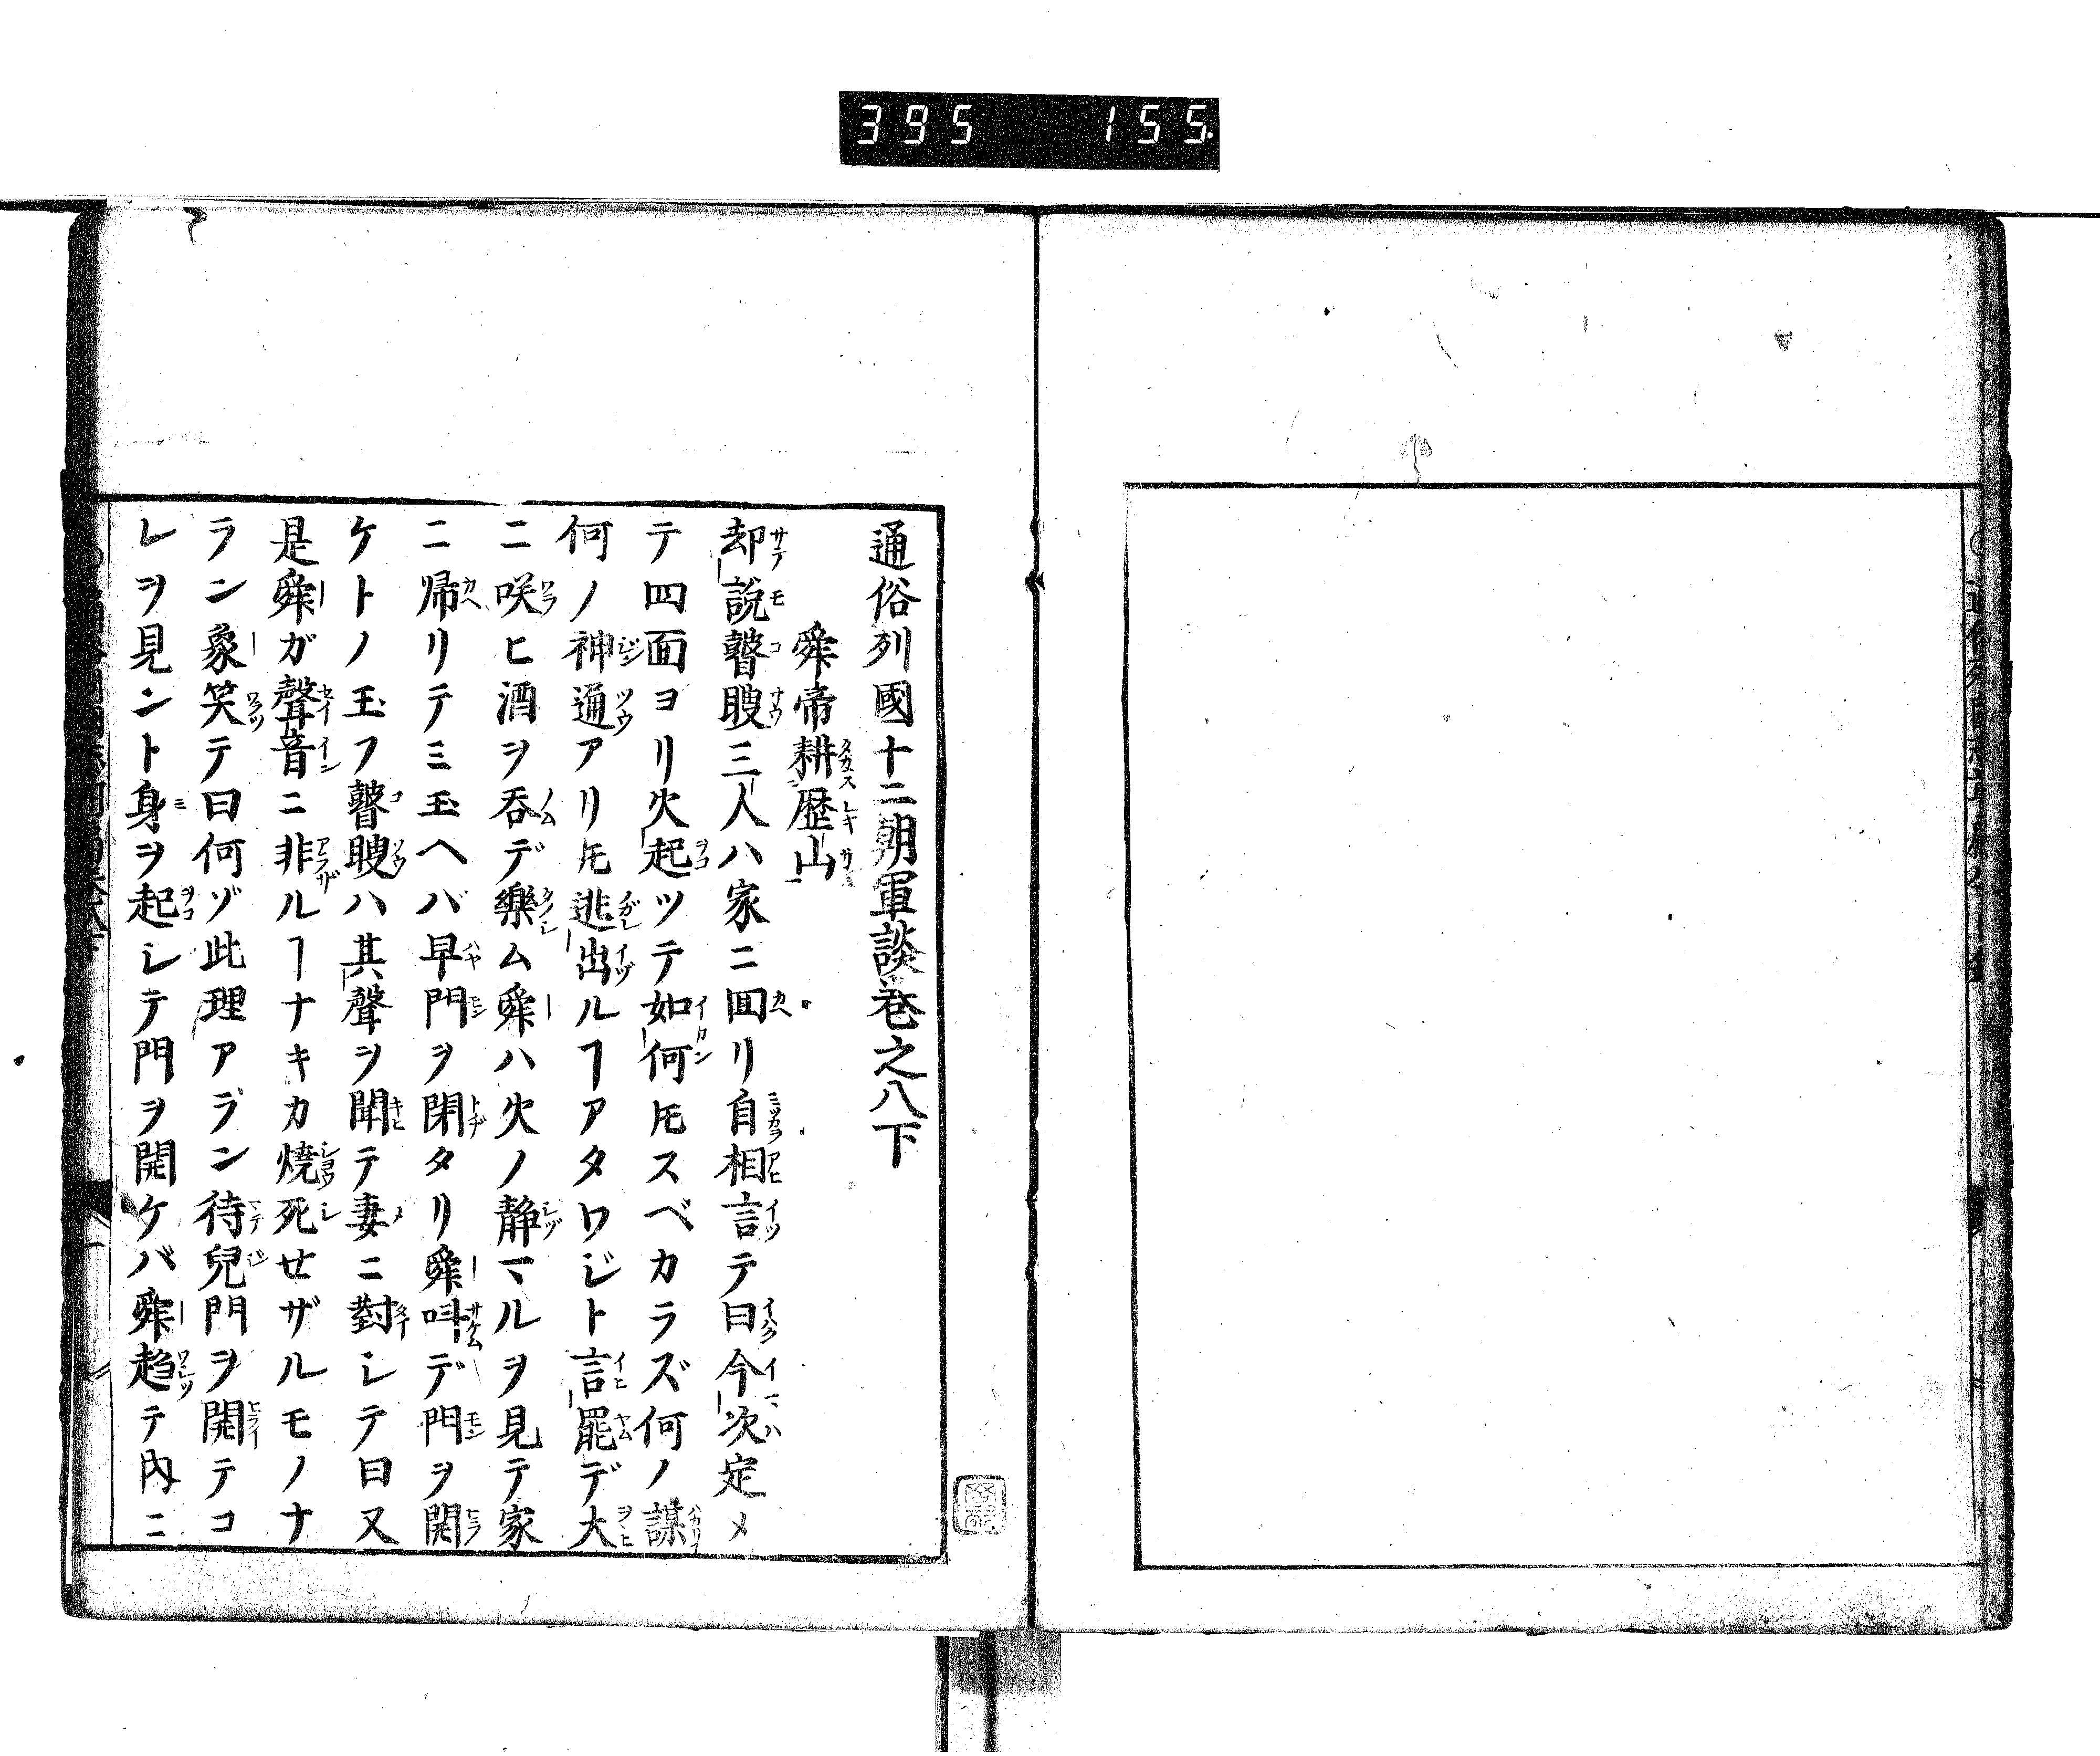 395 155
通俗列國十二朝軍談巻之八下
舜帝耕歴山
却說瞽瞍三人ハ家ニ囬リ自相言テ曰今次定メ
テ四面ヨリ火起ツテ如何𪜈スベカラズ何ノ謀
何ノ神通アリ𪜈逃出ルヿアタワジト言罷デ大
ニ咲ヒ酒ヲ呑デ樂ム舜ハ火ノ静マルヲ見テ家
ニ帰リテミ玉ヘバ早門ヲ閉タリ舜呌デ門ヲ開
ケトノ玉フ瞽瞍ハ其聲ヲ聞テ妻ニ對シテ曰又
是舜ガ聲音ニ非ルヿナキカ焼死せザルモノナ
ラン象笑テ曰何ゾ此理アラン待兒門ヲ開テコ
レヲ見ント身ヲ起シテ門ヲ開ケバ舜趋テ內ニ